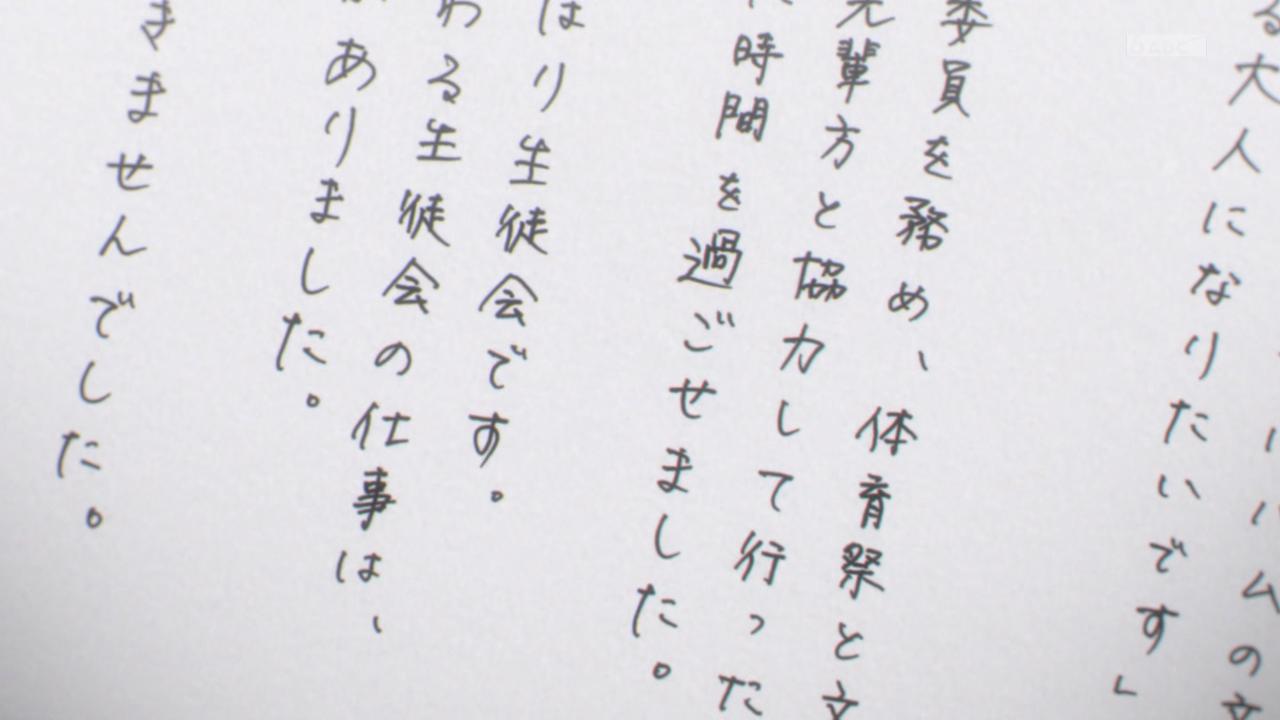 ムの文
る大人になりたいです」
委員を務め、体育祭と文
先輩方と協力して行った
時間を過ごせました。
はり生徒会です。
わる生徒会の仕事は、
がありました。
きませんでした。